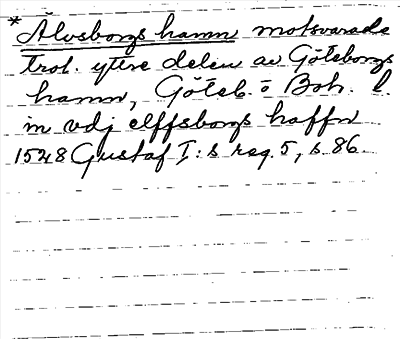 * Älvsborgs hamn motsvarade
trol. yttre delen av Göteborgs
hamn, Göteb. o Boh. l.
in vdj elffsborgs haffn
1528 Gustaf I:s reg. 5, s. 86.